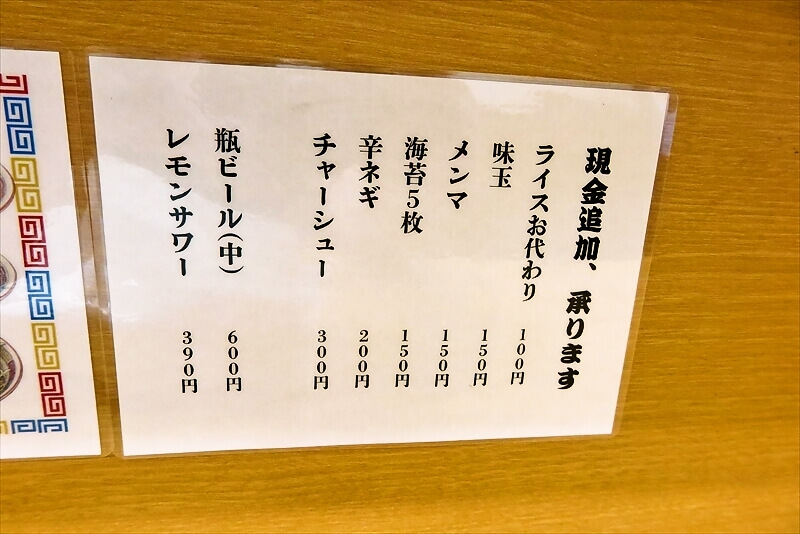 現金追加、承ります
ライスお代わり 100円
味玉 150円
メンマ 150円
海苔5枚 150円
辛ネギ 200円
チャーシュー 300円
瓶ビール(中) 600円
レモンサワー 390円